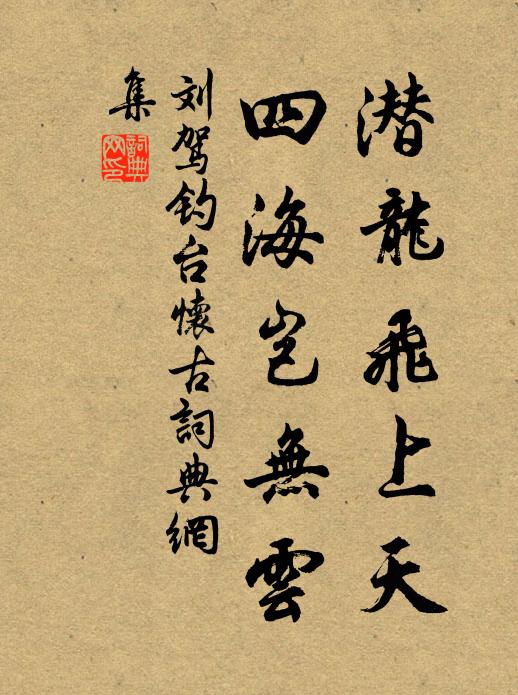 潜龍飛上天
四海岂無雲
刘驾钓台懷古詞典網
集
詞典
网印